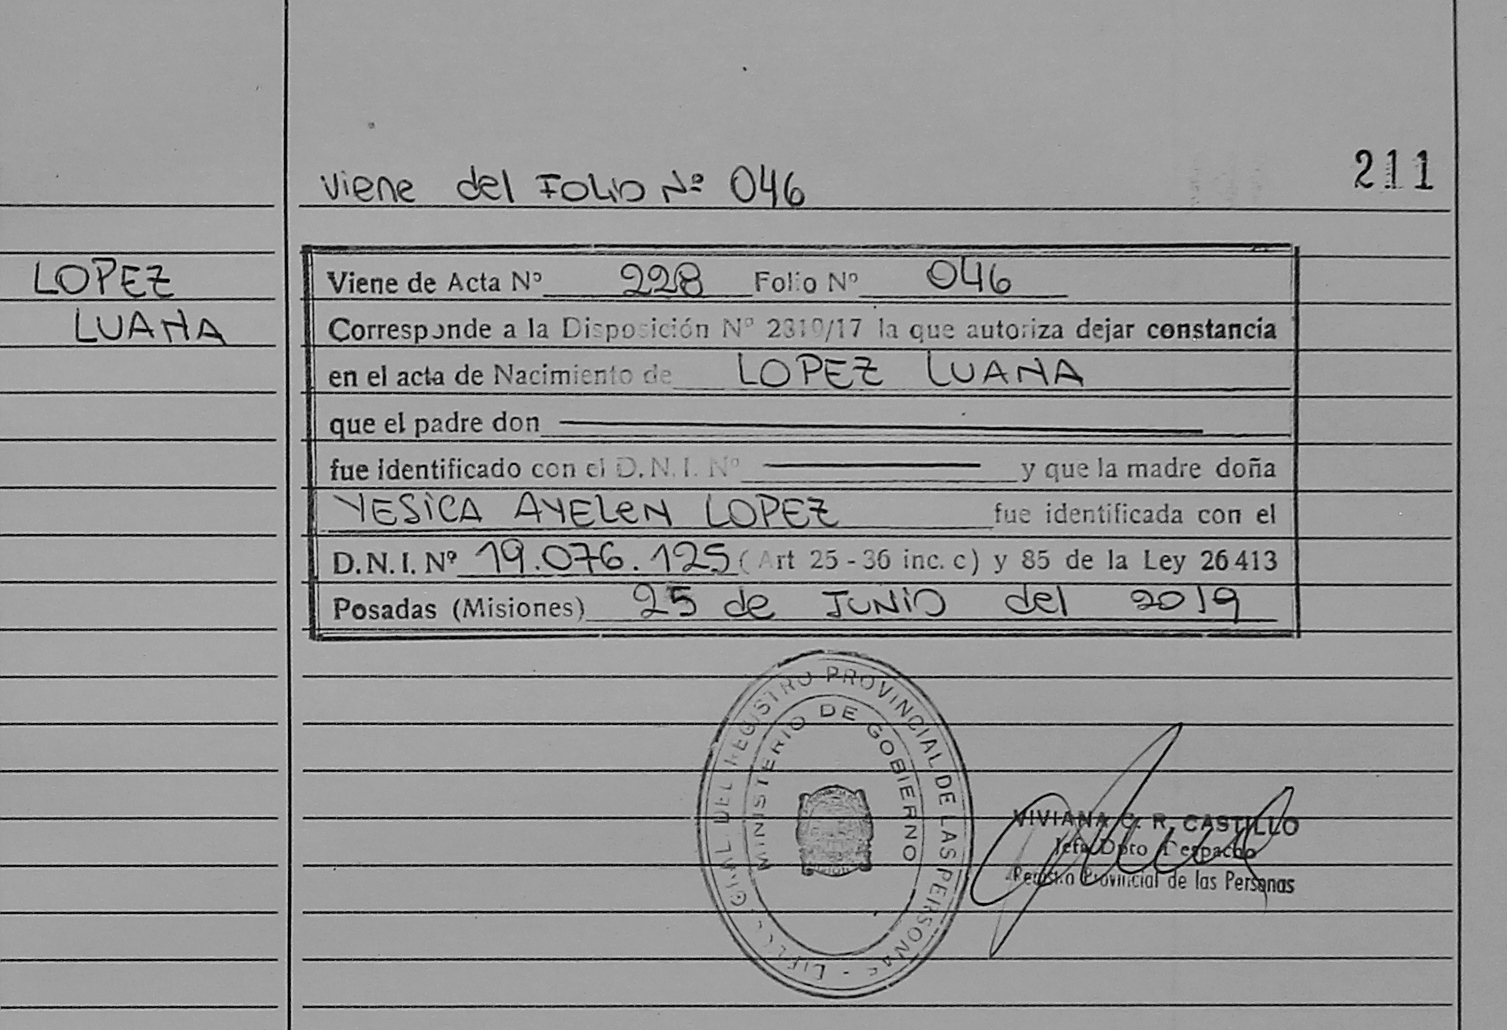 211
viene del FOLIO Nº 046
LOPEZ
LUANA
Viene de Acta Nº 228 Folio Nº 046
Corresponde a la Disposición Nº 2310/17 la que autoriza dejar constancia
en el acta de Nacimiento de LOPEZ LUANA
que el padre don
fue identificado con el D.N.I. Nº y que la madre doña
YESICA AYELEN LOPEZ fue identificada con el
D.N.I. Nº 19.076.125 (Art 25 - 36 inc. c) y 85 de la Ley 26413
Posadas (Misiones) 25 de JUNIO del 2019
GRAL. DEL REGISTRO PROVINCIAL DE LAS PERSONAS
MINISTERIO DE GOBIERNO
VIVIANA R. CASTILLO
Jefa Dpto Despacho
Registro Provincial de las Personas